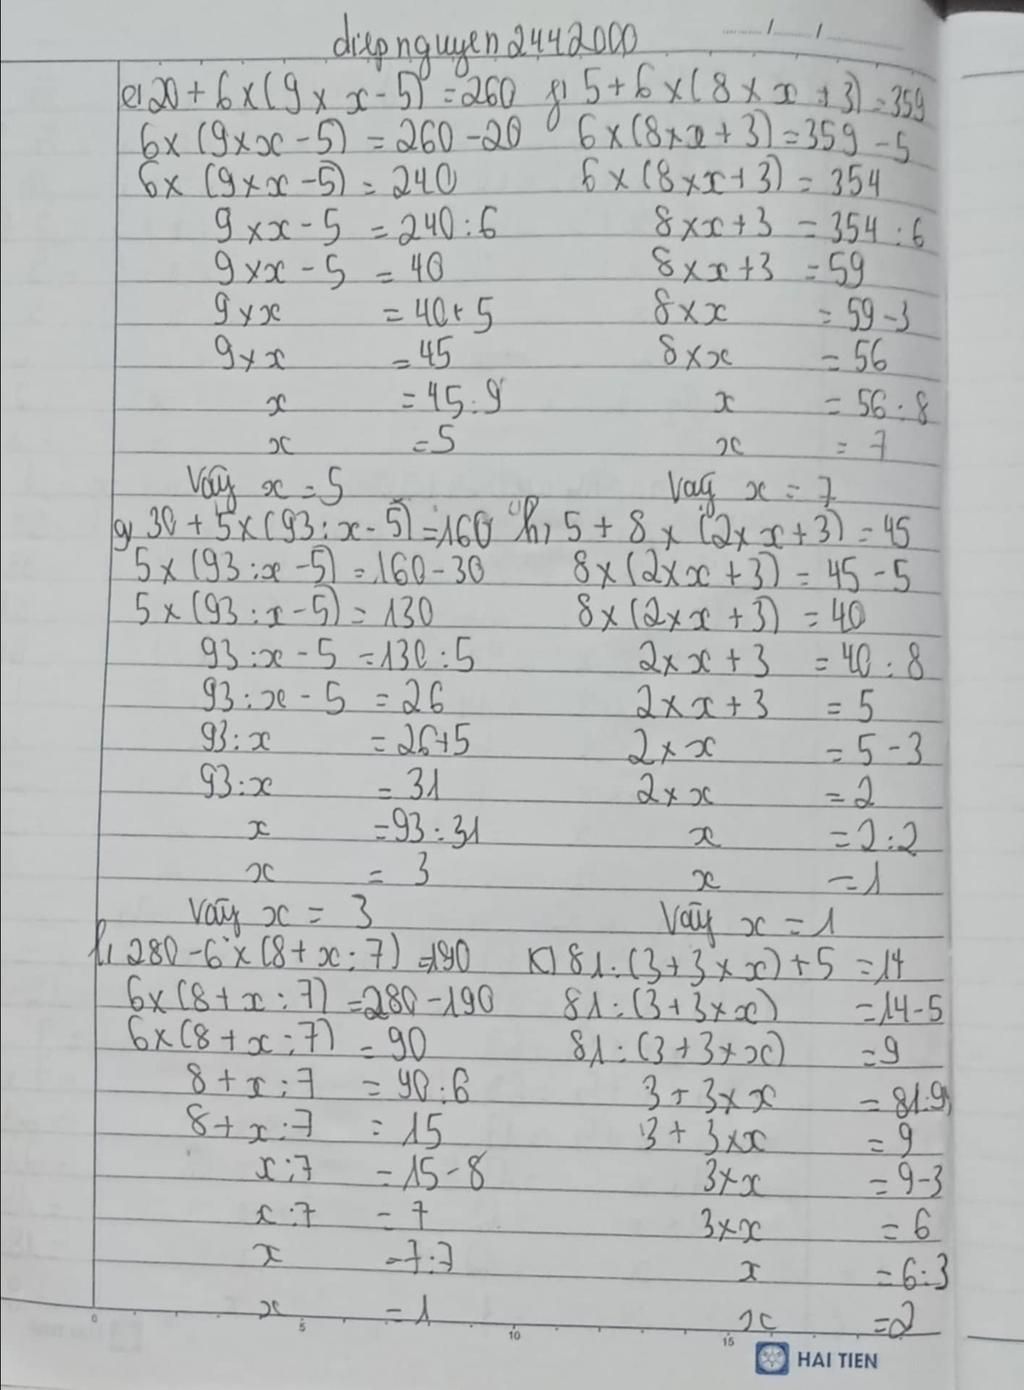 diepnguyen2442000
e, 20 + 6 x (9 x x - 5) = 260
6 x (9 x x - 5) = 260 - 20
6 x (9 x x - 5) = 240
9 x x - 5 = 240 : 6
9 x x - 5 = 40
9 x x = 40 + 5
9 x x = 45
x = 45 : 9
x = 5
Vậy x = 5
f, 5 + 6 x (8 x x + 3) = 359
6 x (8 x x + 3) = 359 - 5
6 x (8 x x + 3) = 354
8 x x + 3 = 354 : 6
8 x x + 3 = 59
8 x x = 59 - 3
8 x x = 56
x = 56 : 8
x = 7
Vậy x = 7
g, 30 + 5 x (93 : x - 5) = 160
5 x (93 : x - 5) = 160 - 30
5 x (93 : x - 5) = 130
93 : x - 5 = 130 : 5
93 : x - 5 = 26
93 : x = 26 + 5
93 : x = 31
x = 93 : 31
x = 3
Vậy x = 3
h, 5 + 8 x (2 x x + 3) = 45
8 x (2 x x + 3) = 45 - 5
8 x (2 x x + 3) = 40
2 x x + 3 = 40 : 8
2 x x + 3 = 5
2 x x = 5 - 3
2 x x = 2
x = 2 : 2
x = 1
Vậy x = 1
i, 280 - 6 x (8 + x : 7) = 190
6 x (8 + x : 7) = 280 - 190
6 x (8 + x : 7) = 90
8 + x : 7 = 90 : 6
8 + x : 7 = 15
x : 7 = 15 - 8
x : 7 = 7
x = 7 : 7
x = 1
K) 81 : (3 + 3 x x) + 5 = 14
81 : (3 + 3 x x) = 14 - 5
81 : (3 + 3 x x) = 9
3 + 3 x x = 81 : 9
3 + 3 x x = 9
3 x x = 9 - 3
3 x x = 6
x = 6 : 3
x = 2
0 5 10 15
HAI TIEN